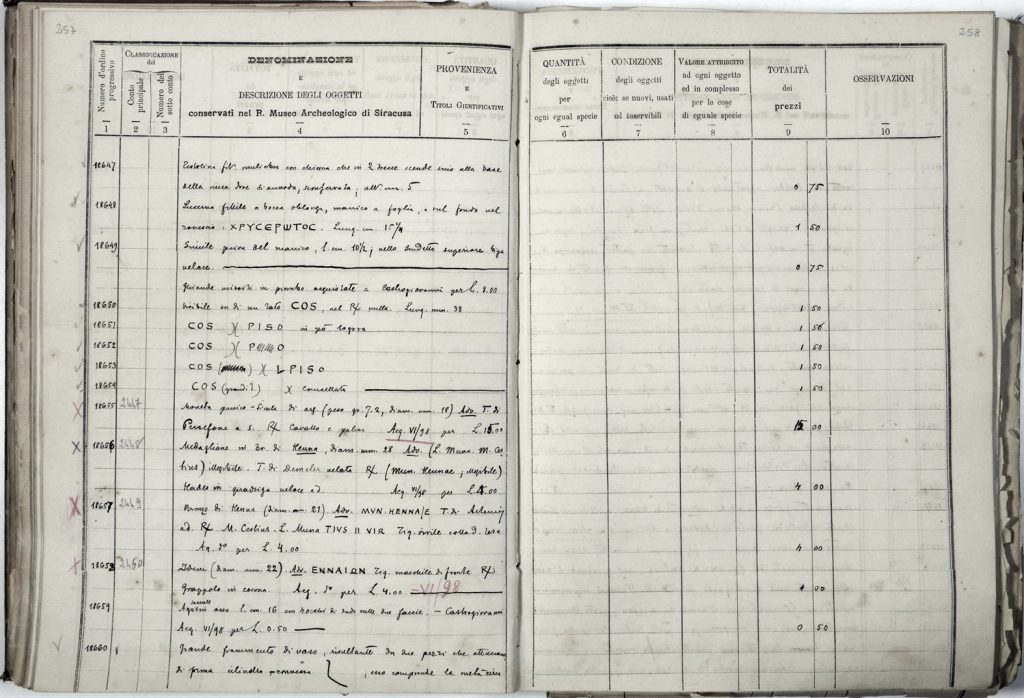 257
Numero d'ordine progressivo
CLASSIFICAZIONE
del
Conto principale
Numero del sotto conto
DENOMINAZIONE
E
DESCRIZIONE DEGLI OGGETTI
conservati nel R. Museo Archeologico di Siracusa
PROVENIENZA
E
TITOLI GIUSTIFICATIVI
1 2 3 4 5
18647 con chioma che in 2 trecce scende sino alla base
della nuca dove si annoda, alt. mm. 5
18648 Lucerna fittile a bocca oblonga, manico a foglia, e sul fondo nel
rovescio: ΧΡΥϹΕΡѠΤΟϹ. Lung. cm. 15
18649 Simile priva del manico, l. cm. 10½; nello scudetto superiore biga
veloce.
Ghiande missili in piombo acquistate a Castrogiovanni per L. 8.00
18650 su di un lato COS, nel R/ nulla. Lung. mm. 38
18651 COS )( PISO un pò logora
18652 COS )( P O
18653 COS ( ) )( L PISO
18654 COS (grandi l.) )( cancellata
18655 2447 Moneta punico-sicula di arg. (peso gr. 7.2, diam. mm. 18) Adv. T. di
Persefone a s. R/ Cavallo e palma Acq. VI/98 per L. 15.00
18656 2448 Medaglione in br. di Henna, diam. mm. 28 Adv. (L. Muna. M. Ces
tius) T. di Demeter velata R/ (Mun. Hennae,
Hades in quadriga veloce a d. Acq. VI/98 per L. 4.00
18657 2449 Bronzo di Henna (diam. mm. 21). Adv. MVN. HENNAE T. di
a d. R/ M. Cestius. L. Muna TIVS II VIR Fig. virile colla d. tesa
Aq. d° per L. 4.00
18658 2450 Idem (diam. mm. 22). Adv. ENNAIΩN Fig. maschile di fronte R/
Grappolo in corona. Acq. d° per L. 4.00 —VI/98
18659 osso l. cm. 16 con occhi di dado sulle due faccie. – Castrogiovanni
Acq. VI/98 per L. 0.50
18660 Grande frammento di vaso, risultante da due pezzi che attaccano
di forma cilindro , esso comprende la metà circa
258
QUANTITÀ
degli oggetti
per
ogni egual specie
CONDIZIONE
degli oggetti
cioè: se nuovi, usati
od inservibili
VALORE ATTRIBUITO
ad ogni oggetto
ed in complesso
per le cose
di eguale specie
TOTALITÀ
dei
prezzi
OSSERVAZIONI
6 7 8 9 10
0 75
1 50
0 75
1 50
1 50
1 50
1 50
1 50
15 00
4 00
4 00
4 00
0 50